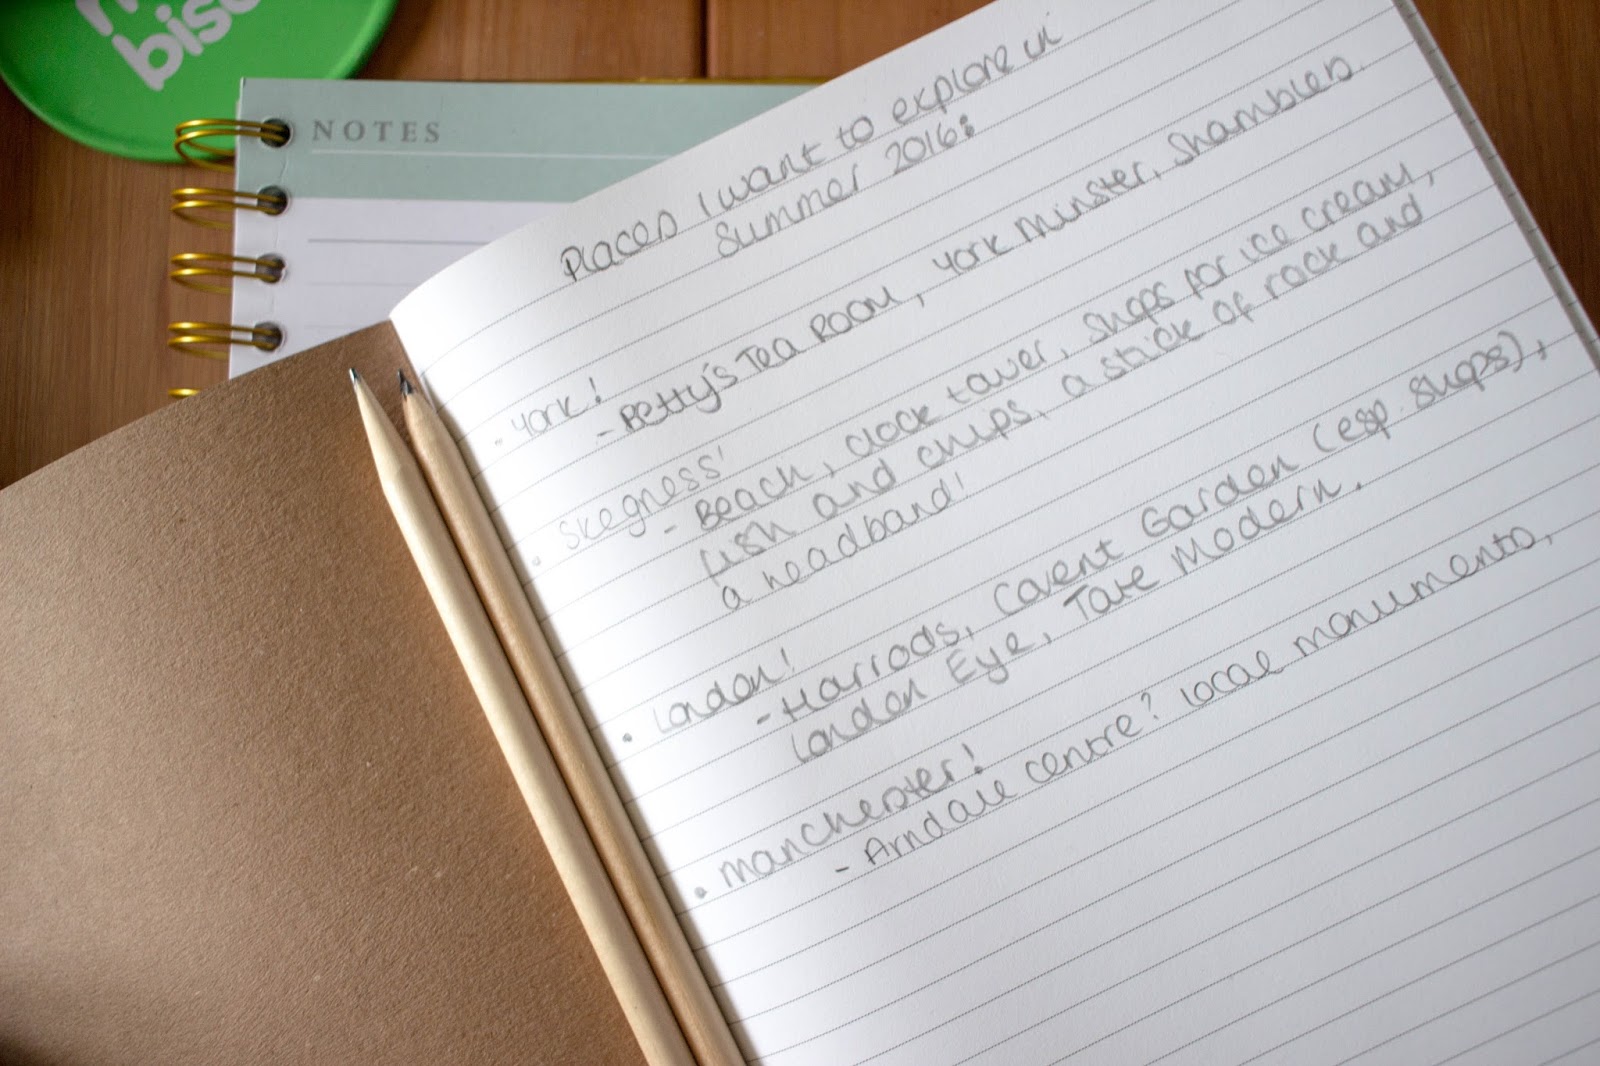 bis
NOTES
Places I want to explore in
Summer 2016:
• York!
- Betty's Tea Room, York Minster, Shambles.
• Skegness!
- Beach, clock tower, sugps for ice cream,
fish and chips, a stick of rock and
a headband!
• London!
- Harrods, Covent Garden (esp. sugps),
London Eye, Tate Modern.
• Manchester!
- Arndale centre? Local monuments,